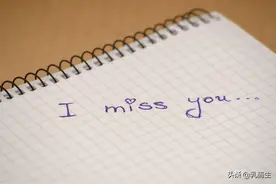 I miss you...
头条@乳腺生